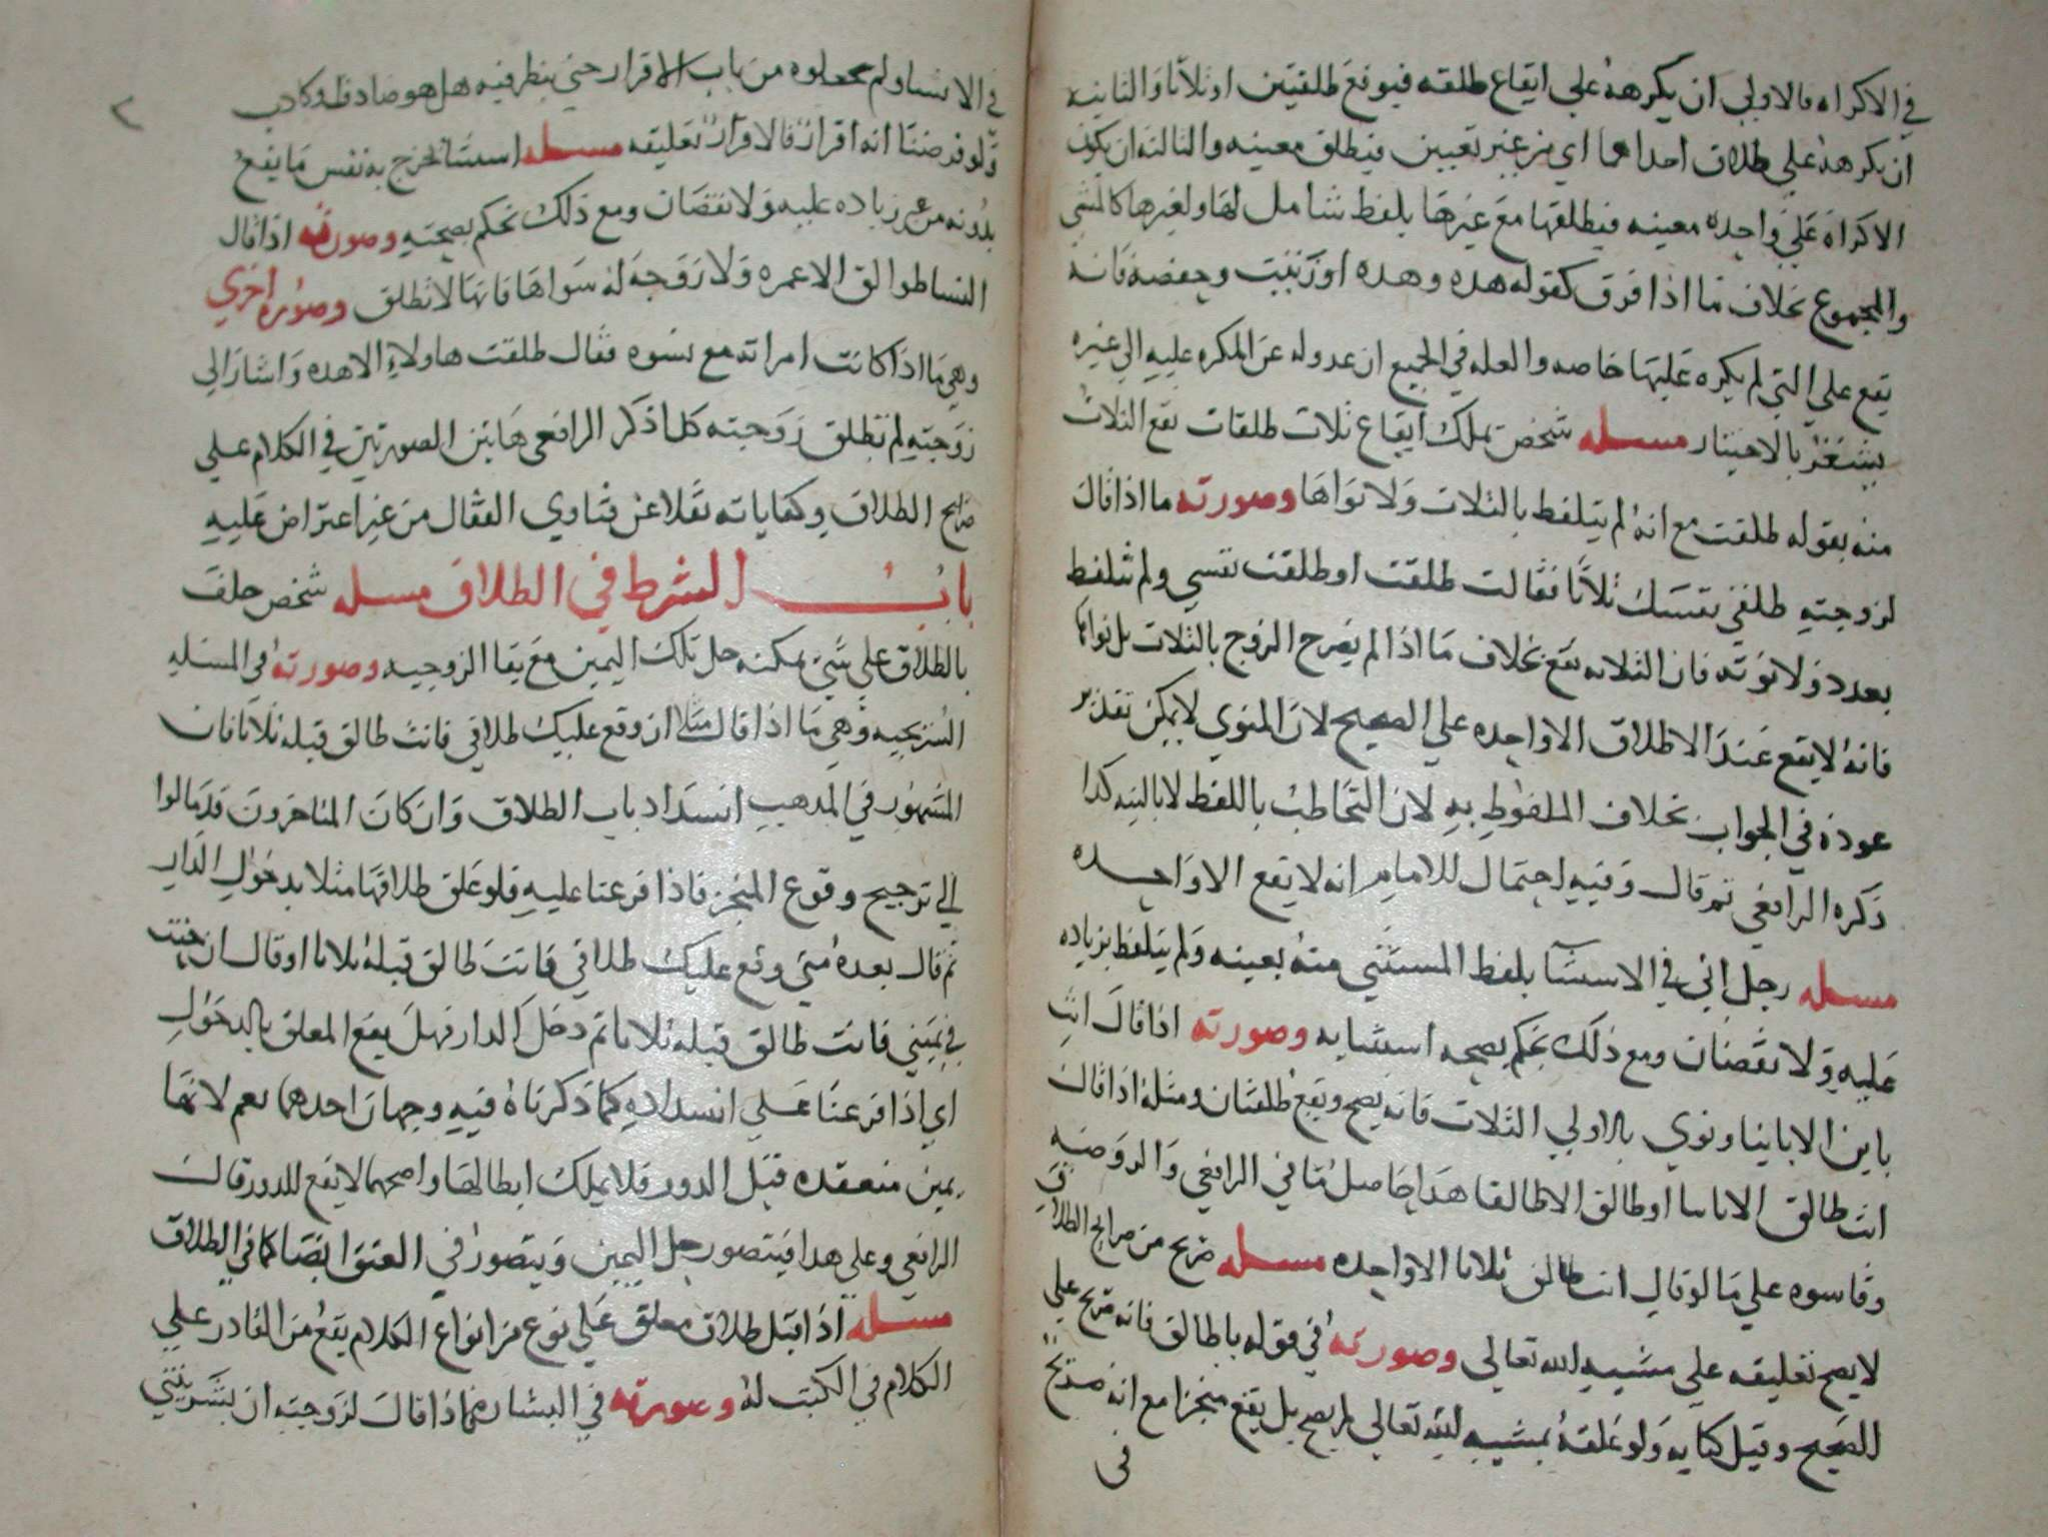 في الاكراه فالاولي ان يكرهه علي ايقاع طلقه فيوقع طلقتين او ثلاثا والثانيه
ان يكرهه علي طلاق احداهما اي من غير تعيين فيطلق معينه والثالثه ان يكون
الاكراه علي واحده معينه فيطلقها مع غيرها بلفظ شامل لها ولغيرها كالمثني
والمجموع بخلاف ما اذا فرق كقوله هده وهده او زينب وحفصه فانه
يقع علي التي لم يكره عليها خاصه والعله في الجميع ان عدوله عن المكره عليه الي غيره
يشعر بالاختيار مسله شخص يملك ايقاع ثلاث طلقات يقع الثلاث
منه بقوله طلقت مع انه لم يتلفظ بالثلاث ولا نواها وصورته ما اذا قال
لزوجته طلقي نفسك ثلاثا فقالت طلقت او طلقت نفسي ولم تتلفظ
بعدد ولا نوته فان الثلاثه يقع بخلاف ما اذا لم يصرح الزوج بالثلاث بل نواها
فانه لا يقع عند الاطلاق الا واحده علي الصحيح لان المنوي لا يمكن تقدير
عوده في الجواب بخلاف الملفوظ به لان التخاطب باللفظ لا بالنيه كدا
ذكره الرافعي ثم قال وفيه احتمال للامام انه لا يقع الا واحده
مسله رجل اتي في الاستثنا بلفظ المستثني منه بعينه ولم يتلفظ بزياده
عليه ولا نقصان ومع ذلك نحكم بصحه استثنايه وصورته اذا قال انت
باين الا باينا ونوي بالاولي الثلاث فانه يصح ويقع طلقتان ومثله اذا قال
انت طالق الا باينا او طالق الا طالقا هدا حاصل ما في الرافعي والروضه
وقاسوه علي ما لو قال انت طالق ثلاثا الا واحده مسله صريح من صرايح الطلاق
لا يصح تعليقه علي مشييه الله تعالي وصورته في قوله يا طالق فانه صريح علي
الصحيح وقيل كنايه ولو علقه بمشييه الله تعالي لم يصح بل يقع منجزا مع انه صريح
في
في الانشا ولم يجعلوه من باب الاقرار حتي ينظر فيه هل هو صادق او كادب
ولو فرضنا انه اقرار فالاقرار تعليقه مسله استثنا لخرج به نفس ما يقع
بدونه من غير زياده عليه ولا نقصان ومع ذلك نحكم بصحته وصورته اذا قال
النسا طوالق الا عمره ولا زوجه له سواها فانها لا تطلق وصوره اخري
وهي ما اذا كانت امراته مع نسوه فقال طلقت هاولاء الا هده واشار الي
زوجته لم تطلق زوجته كدا ذكر الرافعي هاتين الصورتين في الكلام علي
صرايح الطلاق وكناياته نقلا عن فتاوي القفال من غير اعتراض عليه
باب الشرط في الطلاق مسله شخص حلف
بالطلاق علي شي يمكنه حل تلك اليمين مع بقا الزوجيه وصورته في المسله
السريجيه وهي ما اذا قال مثلا ان وقع عليك طلاقي فانت طالق قبله ثلاثا فان
المشهور في المدهب انسداد باب الطلاق وان كان المتاخرون قد مالوا
الي ترجيح وقوع المنجز فاذا فرعنا عليه فلو علق طلاقها مثلا بدخول الدار
ثم قال بعده متي وقع عليك طلاقي فانت طالق قبله ثلاثا او قال ان حنثت
في يميني فانت طالق قبله ثلاثا ثم دخل الدار فهل يقع المعلق بالدخول
اي اذا فرعنا علي انسداده كما ذكرناه فيه وجهان احدهما نعم لانها
يمين منعقده قبل الدور فلا يملك ابطالها واصحهما لا يقع للدور قال
الرافعي وعلي هدا فيتصور حل اليمين ويتصور في العتق ايضا كما في الطلاق
مسله اذا قبل طلاق معلق علي نوع من انواع الكلام يقع من القادر علي
الكلام في الكتب له وصورته في البشاره فاذا قال لزوجته ان بشرتيني